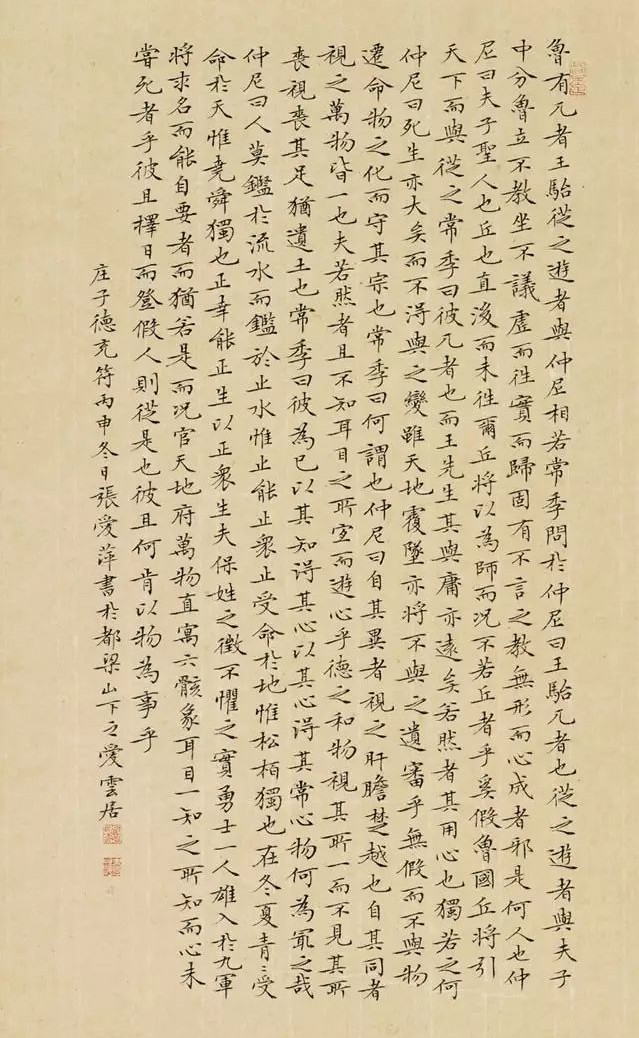 魯有兀者王駘從之遊者與仲尼相若常季問於仲尼曰王駘兀者也從之遊者與夫子
中分魯立不教坐不議虛而往實而歸固有不言之教無形而心成者邪是何人也仲
尼曰夫子聖人也丘也直後而未往爾丘將以為師而况不若丘者乎奚假魯國丘將引
天下而與從之常季曰彼兀者也而王先生其與庸亦遠矣若然者其用心也獨若之何
仲尼曰死生亦大矣而不淂與之變雖天地覆墜亦將不與之遺審乎無假而不與物
遷命物之化而守其宗也常季曰何謂也仲尼曰自其異者視之肝膽楚越也自其同者
視之萬物皆一也夫若然者且不知耳目之所宜而遊心乎德之和物視其所一而不見其所
喪視喪其足猶遺土也常季曰彼為己以其知淂其心以其心淂其常心物何為冣之哉
仲尼曰人莫鑑於流水而鑑於止水惟止能止衆止受命於地惟松栢獨也在冬夏青〻受
命於天惟堯舜獨也正幸能正生以正衆生夫保姓之徵不懼之實勇士一人雄入於九軍
將求名而能自要者而猶若是而况官天地府萬物直寓六骸象耳目一知之所知而心未
嘗死者乎彼且擇日而登假人則從是也彼且何肯以物為事乎
庄子德充符丙申冬日張愛萍書於都梁山下之愛雲居